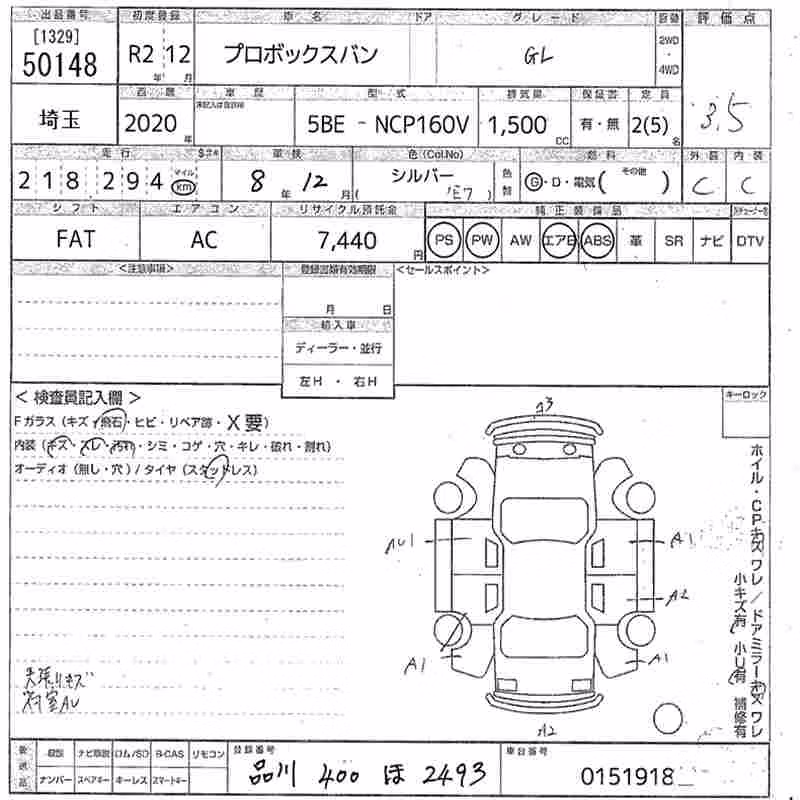 出品番号 初度登録 車名 ドア グレード 駆動 評価点
[1329]
50148 R2 12 プロボックスバン GL 2WD・4WD 3.5
年 月
埼玉 2020年 車歴 車証 型式 排気量 保証書 定員
5BE - NCP160V 1,500cc 有・無 2(5)名
走行 車検 色(Col.No) 燃料 その他 外装 内装
218,294 マイル km 8年12月 シルバー (1E7) 色替 G・D・電気( ) C C
シフト エアコン リサイクル預託金 純正装備品
FAT AC 7,440円 PS PW AW エアB ABS 革 SR ナビ DTV
<注意事項> 登録書類有効期限 <セールスポイント>
月 日
輸入車
ディーラー・並行
左H ・ 右H
キーロック
< 検査員記入欄 >
Fガラス (キズ・飛石・ヒビ・リペア跡・X要)
内装 (キズ・スレ・汚れ・シミ・コゲ・穴・キレ・破れ・割れ)
オーディオ (無し・穴) / タイヤ (スタッドレス)
G3
AU1 A1
A2
A1 A1
A2
ホイル・CPキズ ワレ / ドアミラーキズ ワレ
小キズ有 小U有 補修有
天張リキズ
荷室AU
後送品 取説 ナビ取説 ロム/SD B-CAS リモコン 登録番号 車台番号
ナンバー スペアキー キーレス スマートキー 品川 400 ほ 2493 0151918